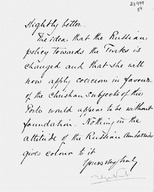 22499
slightly better.
The idea that the Russian
policy towards the Turks is
changed and that she will
now apply coercion in favour
of the Christian subjects of this
Porte would appear to be without
foundation. Nothing in the
attitude of the Russian Ambassador
gives colour to it.
Yours very truly